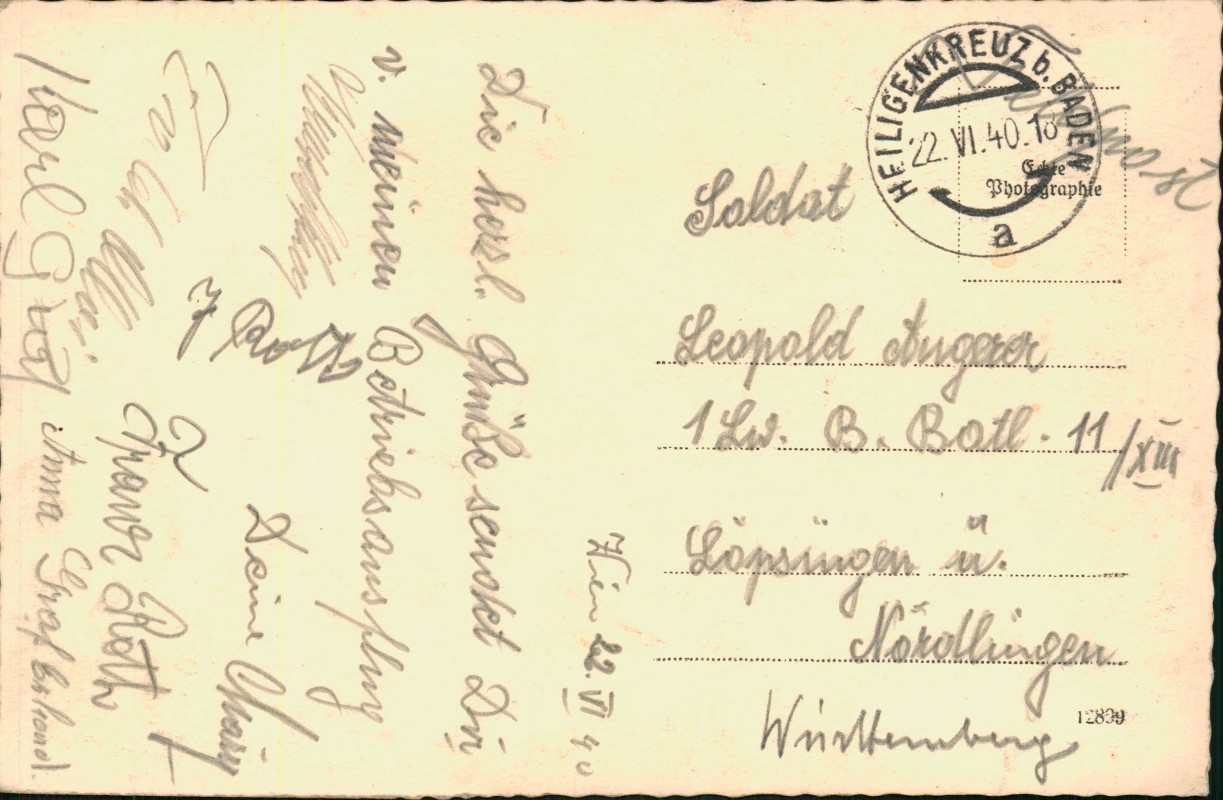 Wien 22. VI 40
Die herzl. Grüße sendet Dir
v. meinen Betriebsausflug
Deine
Franz Roth
Karl Graf
Anna Graf
Feldpost
HEILIGENKREUZ b. BADEN
22. VI. 40. 18
a
Echte
Photographie
Soldat
Leopold Angerer
1 Lw. B. Batl. 11/XIII
Löpsingen ü.
Nördlingen
Württemberg
12839